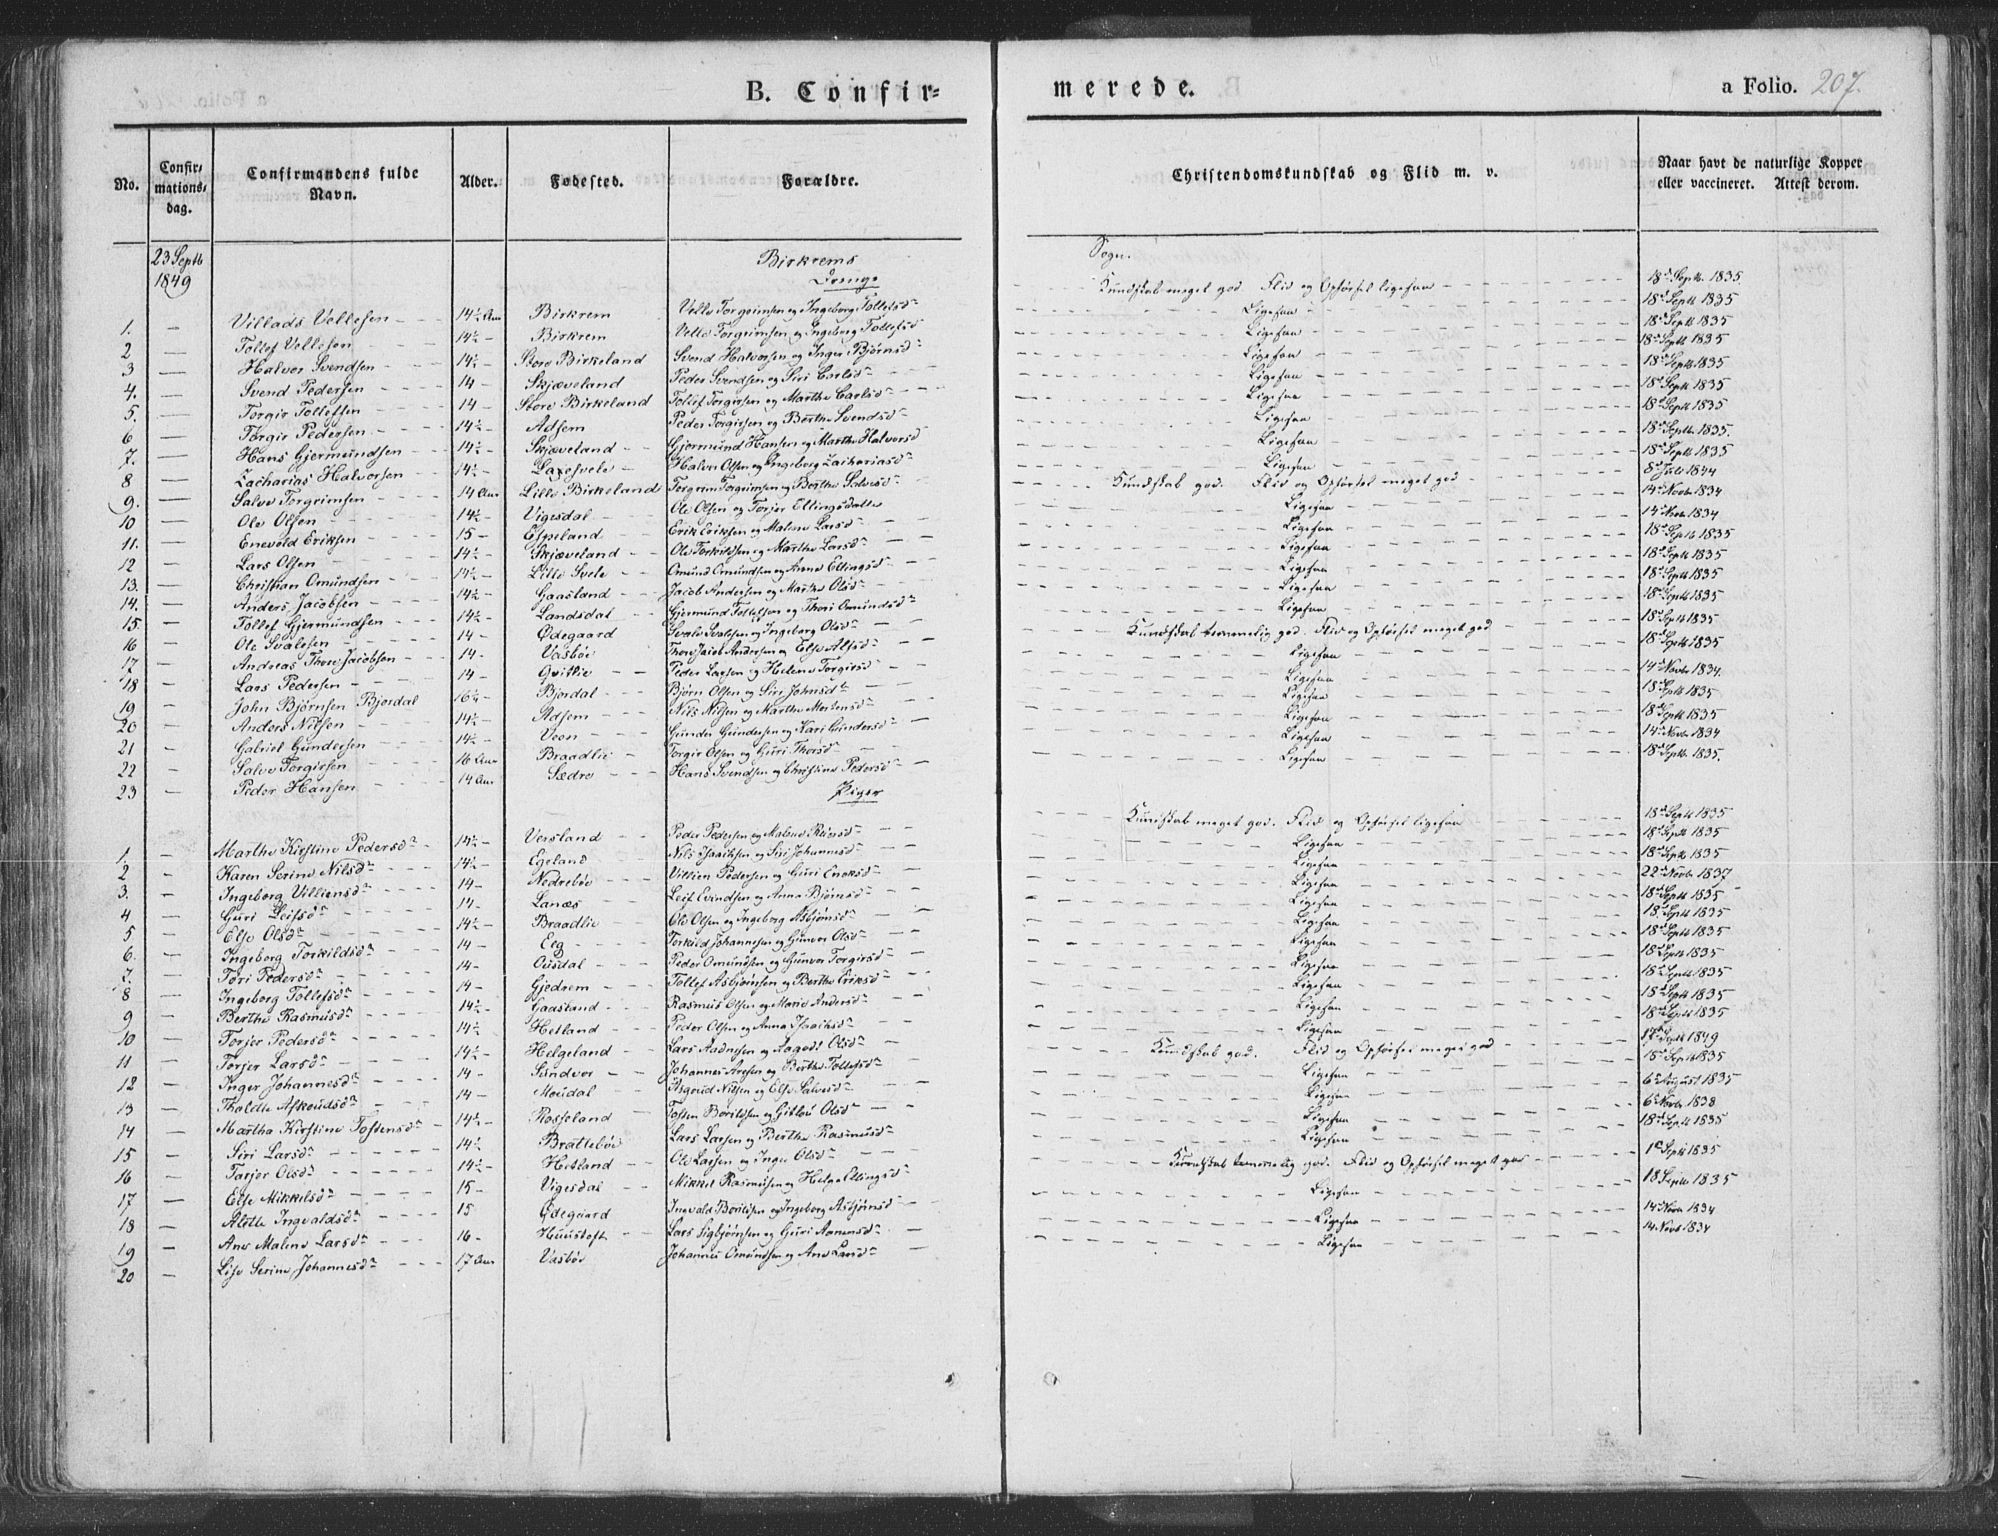 B. Confir=
merede.
a Folio. 207.
No.
Confir-
mations-
dag.
Confirmandens fulde
Navn.
Alder.
Fødested.
Forældre.
Christendomskundskab og Flid m. v.
Naar havt de naturlige Kopper
eller vaccineret. Attest derom.
23 Septb
1849
Birkrems Sogn.
Drenge
1. — Villads Vellesen 14½ Aar Birkrem Velle Torgrimsen og Ingeborg Tollefsd Kundskab meget god. Flid og Opførsel ligesaa 18d Septb. 1835
2 — Tollef Vellesen 14½ Birkrem Velle Torgrimsen og Ingeborg Tollefsd Ligesaa 18d Septb 1835
3 — Halvor Svendsen 14½ Store Birkeland Svend Halvorsen og Inger Bjørnsd Ligesaa 18d Septb 1835
4. — Svend Pedersen 14 Skjæveland Peder Svendsen og Siri Carlsd Ligesaa 18d Septb 1835
5. — Torgir Tollefsen 14 Store Birkeland Tollef Torgirsen og Marthe Carlsd Ligesaa 18d Septb 1835
6 — Torgir Pedersen 14½ Adsem Peder Torgirsen og Berthe Svendsd Ligesaa 18d Septb 1835
7. — Hans Gjermundsen 14½ Skjæveland Gjermund Hansen og Marthe Halvorsd Ligesaa 18d Septb 1835
8 — Zacharias Halvorsen 14½ Laxesvele Halvor Olsen og Ingeborg Zachariasd Ligesaa 18d Septb 1835.
9. — Salve Torgrimsen 14 Aar Lille Birkeland Torgrim Torgrimsen og Berthe Salvesd Kundskab god. Flid og Opførsel meget god 18d Septb 1835
10 — Ole Olsen 14½ Vigesdal Ole Olsen og Torjer Ellingsdatter Ligesaa 8d Juli 1844
11. — Enevold Eriksen 15 Espeland Erik Eriksen og Malene Larsd Ligesaa 14d Novbr 1834
12 — Lars Olsen 14½ Skjæveland Ole Torkildsen og Marthe Larsd Ligesaa 14d Novbr 1834
13. — Christian Omundsen 14½ Lille Svele Omund Omundsen og Anne Ellingsd Ligesaa 18d Septb 1835
14. — Anders Jacobsen 14½ Gaasland Jacob Andersen og Marthe Olsd Ligesaa 18d Septb 1835
15 — Tollef Gjermundsen 14½ Landsdal Gjermund Tollefsen og Thori Omundsd Ligesaa 18d Septb 1835
16 — Ole Svalesen 14 Ødegaard Svale Svalesen og Ingeborg Olsd Kundskab temmelig god. Flid og Opførsel meget god 18d Septb 1835
17 — Andreas Thore Jacobsen 14 Vasbøe Thore Jacob Andersen og Else Alfsd Ligesaa 18d Septb 1835
18 — Lars Pedersen 14 Qvitlie Peder Larsen og Helene Torgirsd Ligesaa 18d Septb 1835
19 — John Bjørnsen Bjordal 16½ Bjordal Bjørn Olsen og Siri Johnsd Ligesaa 14d Novbr 1834.
20 — Anders Nilsen 14½ Adsem Nils Nilsen og Marthe Mortensd Ligesaa 18d Septb 1835
21 — Gabriel Gundersen 14½ Veen Gunder Gundersen og Kari Gundersd Ligesaa 18d Septb 1835
22 — Salve Torgirsen 16 Aar Braadlie Torgir Olsen og Guri Thorsd Ligesaa 14d Novbr 1834
23 — Peder Hansen 14 Aar Sædre Hans Svendsen og Christine Pedersd Ligesaa 18d Septb. 1835.
Piger
1. — Marthe Kirstine Pedersdr 14½ Versland Peder Pedersen og Malene Reiersd Kundskab meget god. Flid og Opførsel ligesaa 18d Septb 1835
2 — Karen Serine Nilsdr 14½ Egeland Nils Isaaksen og Siri Johannesd Ligesaa 18d Septb 1835
3. — Ingeborg Villiensdr 14 Nedrebøe Villien Pedersen og Guri Enoksd Ligesaa 18d Septb 1835
4 — Guri Leifsdr 14 Lanæs Leif Evindsen og Anna Bjørnsd Ligesaa 22d Novbr 1837
5 — Else Olsdr 14½ Braadlie Ole Olsen og Ingeborg Asbjørnsd Ligesaa 18d Septb 1835
6. — Ingeborg Torkildsdr 14 Eeg Torkild Johannesen og Gunvor Olsd Ligesaa 18d Septb 1835
7. — Tori Pedersdr 14 Ousdal Peder Omundsen og Gunvor Torgirsd Ligesaa 18d Septb 1835
8 — Ingeborg Tollefsdr 14 Gjedrem Tollef Asbjørnsen og Berthe Eriksd Ligesaa 18d Septb 1835
9 — Berthe Rasmusdr 14½ Gaasland Rasmus Olsen og Marie Andersd Ligesaa 18d Septb 1835
10 — Torjer Pedersdr 14½ Hetland Peder Olsen og Anna Isaaksd Ligesaa 18d Septb 1835
11 — Torjer Larsdr 14½ Helgeland Lars Aadnesen og Aagodt Olsd Kundskab god. Flid og Opførsel meget god 18d Septb 1835
12 — Inger Johannesdr 14 Sindvor Johannes Aresen og Berthe Tollefsd Ligesaa 17d Septb 1849
13 — 14 Moudal Asgoud Nilsen og Else Salvesd Ligesaa 18d Septb 1835
14 — Martha Kirstine Tostensdr 14½ Rosseland Tosten Borildsen og Gitlou Olsd Ligesaa 6d August 1835
15 — Siri Larsdr 14½ Brattebøe Lars Larsen og Berthe Rasmusd Ligesaa 6d Novbr 1838
16 — Tarjer Olsdr 14½ Hetland Ole Larsen og Inger Olsd Kundskab temmelig god. Flid og Opførsel meget god 18d Septb 1835
17 — Else Mikkelsdr 15 Vigesdal Mikkel Rasmusen og Helge Ellingsd Ligesaa 1d Septb 1835
18 — Alette Ingvaldsdr 15 Ødegaard Ingvald Borildsen og Ingeborg Asbjørnsd 18 Septb 1835
19 — Ane Malene Larsdr 16 Huustoft Lars Sigbjørnsen og Guri Aanensd Ligesaa 14 Novbr 1834
20 — Lise Serine Johannesdr 17 Aar Vasbøe Johannes Omundsen og Ane Larsd Ligesaa 14 Novb 1834